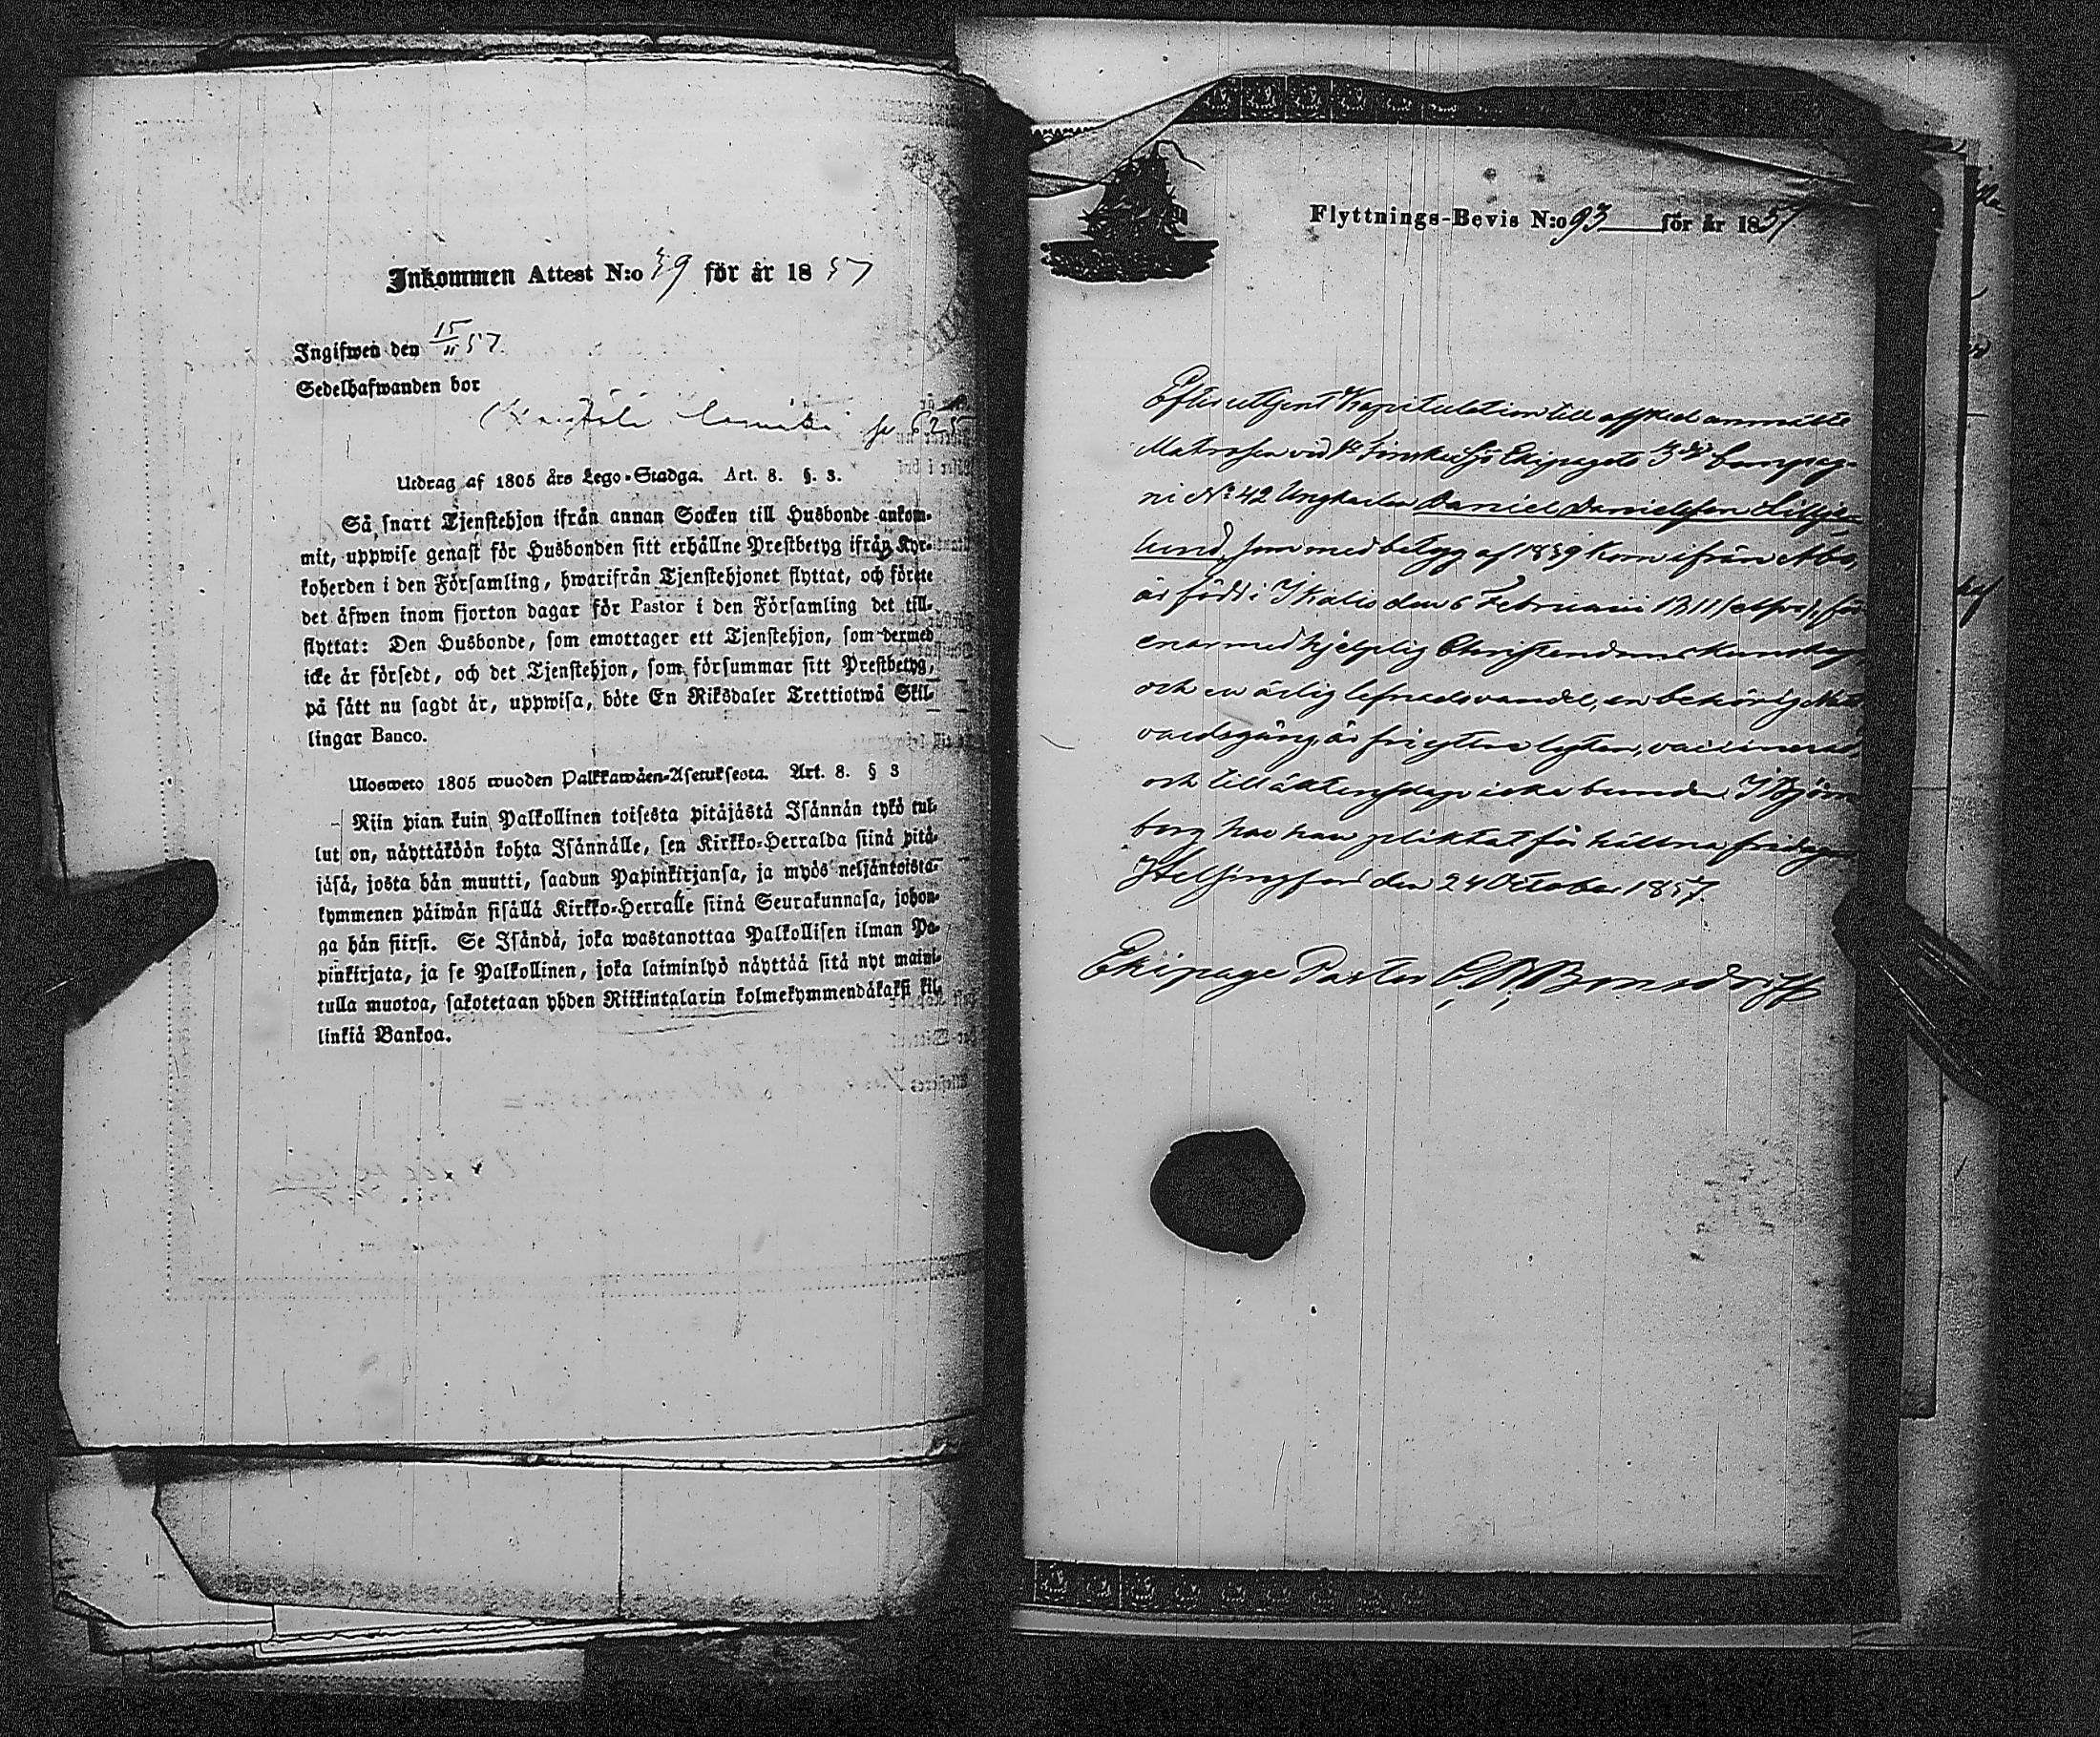 Inkommen Attest N:o 39 för år 1857
Ingifwen den 15/11 57.
Sedelhafwanden bor
Utdrag af 1805 års Lego-Stadga. Art. 8. §. 3.
Så snart Tjenstehjon ifrån annan Socken till Husbonde ankom-
mit, uppwise genast för Husbonden sitt erhållne Prestbetyg ifrån Kyr-
koherden i den Församling, hwarifrån Tjenstehjonet flyttat, och förete
det äfwen inom fjorton dagar för Pastor i den Församling det till-
flyttat: Den Husbonde, som emottager ett Tjenstehjon, som dermed
icke är försedt, och det Tjenstehjon, som försummar sitt Prestbetyg,
på sätt nu sagdt är, uppwisa, böte En Riksdaler Trettiotwå Skil-
lingar Banco.
Ulosweto 1805 wuoden Palkkawäen-Asetuksesta. Art. 8. § 3
Niin pian kuin Palkollinen toisesta pitäjästä Isännän tykö tul-
lut on, näyttäköön kohta Isännälle, sen Kirkko-Herralda siinä pitä-
jäsä, josta hän muutti, saadun Papinkirjansa, ja myös neljäntoista-
kymmenen päiwän sisällä Kirkko-Herralle siinä Seurakunnasa, johon-
ga hän siirsi. Se Isändä, joka wastanottaa Palkollisen ilman Pa-
pinkirjata, ja se Palkollinen, joka laiminlyö näyttää sitä nyt maini-
tulla muotoa, sakotetaan yhden Riikintalarin kolmekymmendäkaksi kil-
linkiä Bankoa.
Flyttnings-Bevis N:o 93 för år 1857
Efter uttjent Kapitulation till afsked anmälte
Matrosen vid 1:a Finska Sjö Ekipagets 3:dje Compag-
ni N:o 42 Ungkarlen Daniel Danielsson Lillje-
lund, som med betyg af 1839 kom ifrån Åbo,
är född i Ikalis den 6 Februari 1811 för-
enar med hjelplig Christendoms kunskap
och en ärlig lefnadsvandel, en behörig Natt-
vardsgång, är fri yttre lyten, vaccinerad,
och till äktenskap icke bunden. I Björne-
borg har han pliktat för
Helsingfors den 24 October 1857.
Ekipage Pastor Bonsdorff